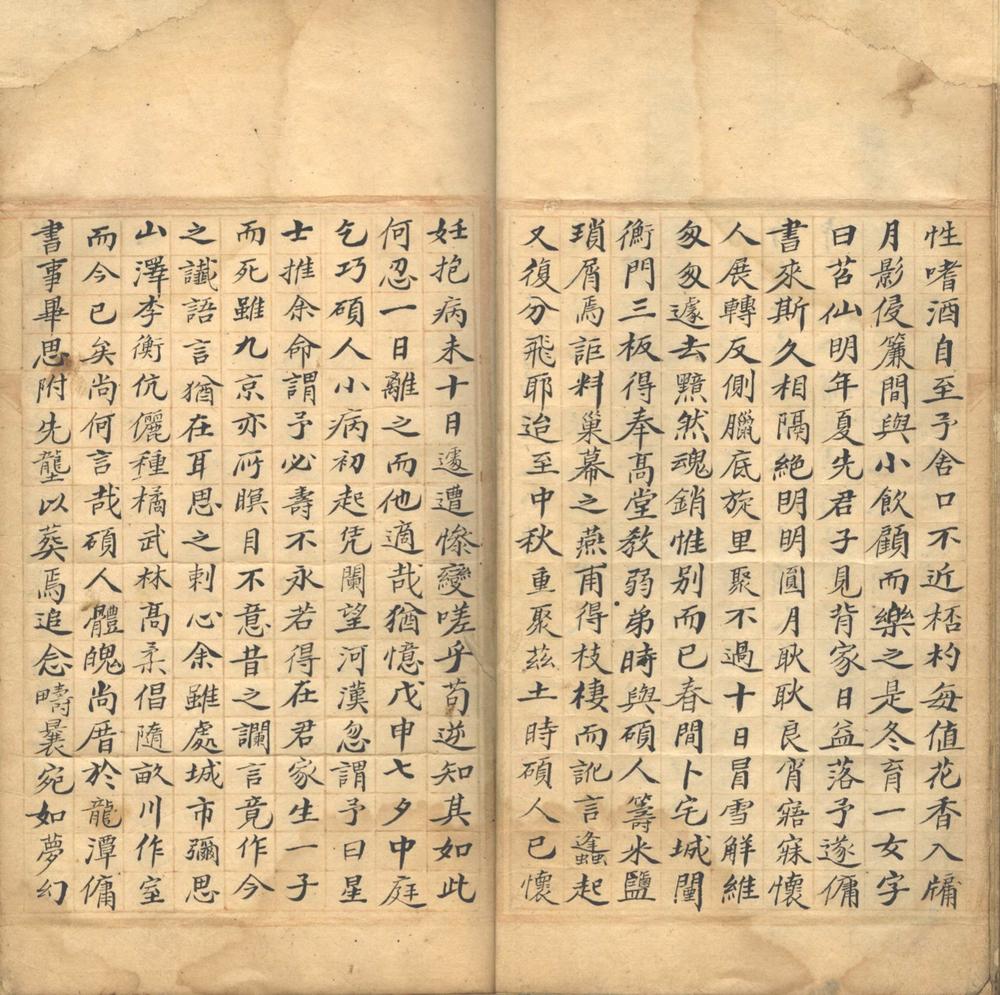 性嗜酒自至予舍口不近桮杓每值花香入牖
月影侵簾間與小飲顧而樂之是冬育一女字
曰苕仙明年夏先君子見背家日益落予遂傭
書來斯久相隔絕明明圓月耿耿良宵寤寐懷
人展轉反側臘底旋里聚不過十日冒雪解維
匆匆遽去黯然魂銷惟別而已春間卜宅城闉
衡門三板得奉高堂教弱弟時與碩人籌米鹽
瑣屑焉詎料巢幕之燕甫得枝棲而訛言蠭起
又復分飛耶迨至中秋重聚茲土時碩人已懷
妊抱病未十日遽遭慘變嗟乎苟逆知其如此
何忍一日離之而他適哉猶憶戊申七夕中庭
乞巧碩人小病初起凭闌望河漢忽謂予曰星
士推余命謂予必壽不永若得在君家生一子
而死雖九京亦所瞑目不意昔之讕言竟作今
之讖語言猶在耳思之刺心余雖處城市彌思
山澤李衡伉儷種橘武林高柔倡隨畝川作室
而今已矣尚何言哉碩人體魄尚厝於龍潭傭
書事畢思附先壟以葬焉追念疇曩宛如夢幻